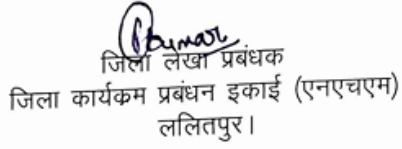 Kumar
जिला लेखा प्रबंधक
जिला कार्यक्रम प्रबंधन इकाई (एनएचएम)
ललितपुर।